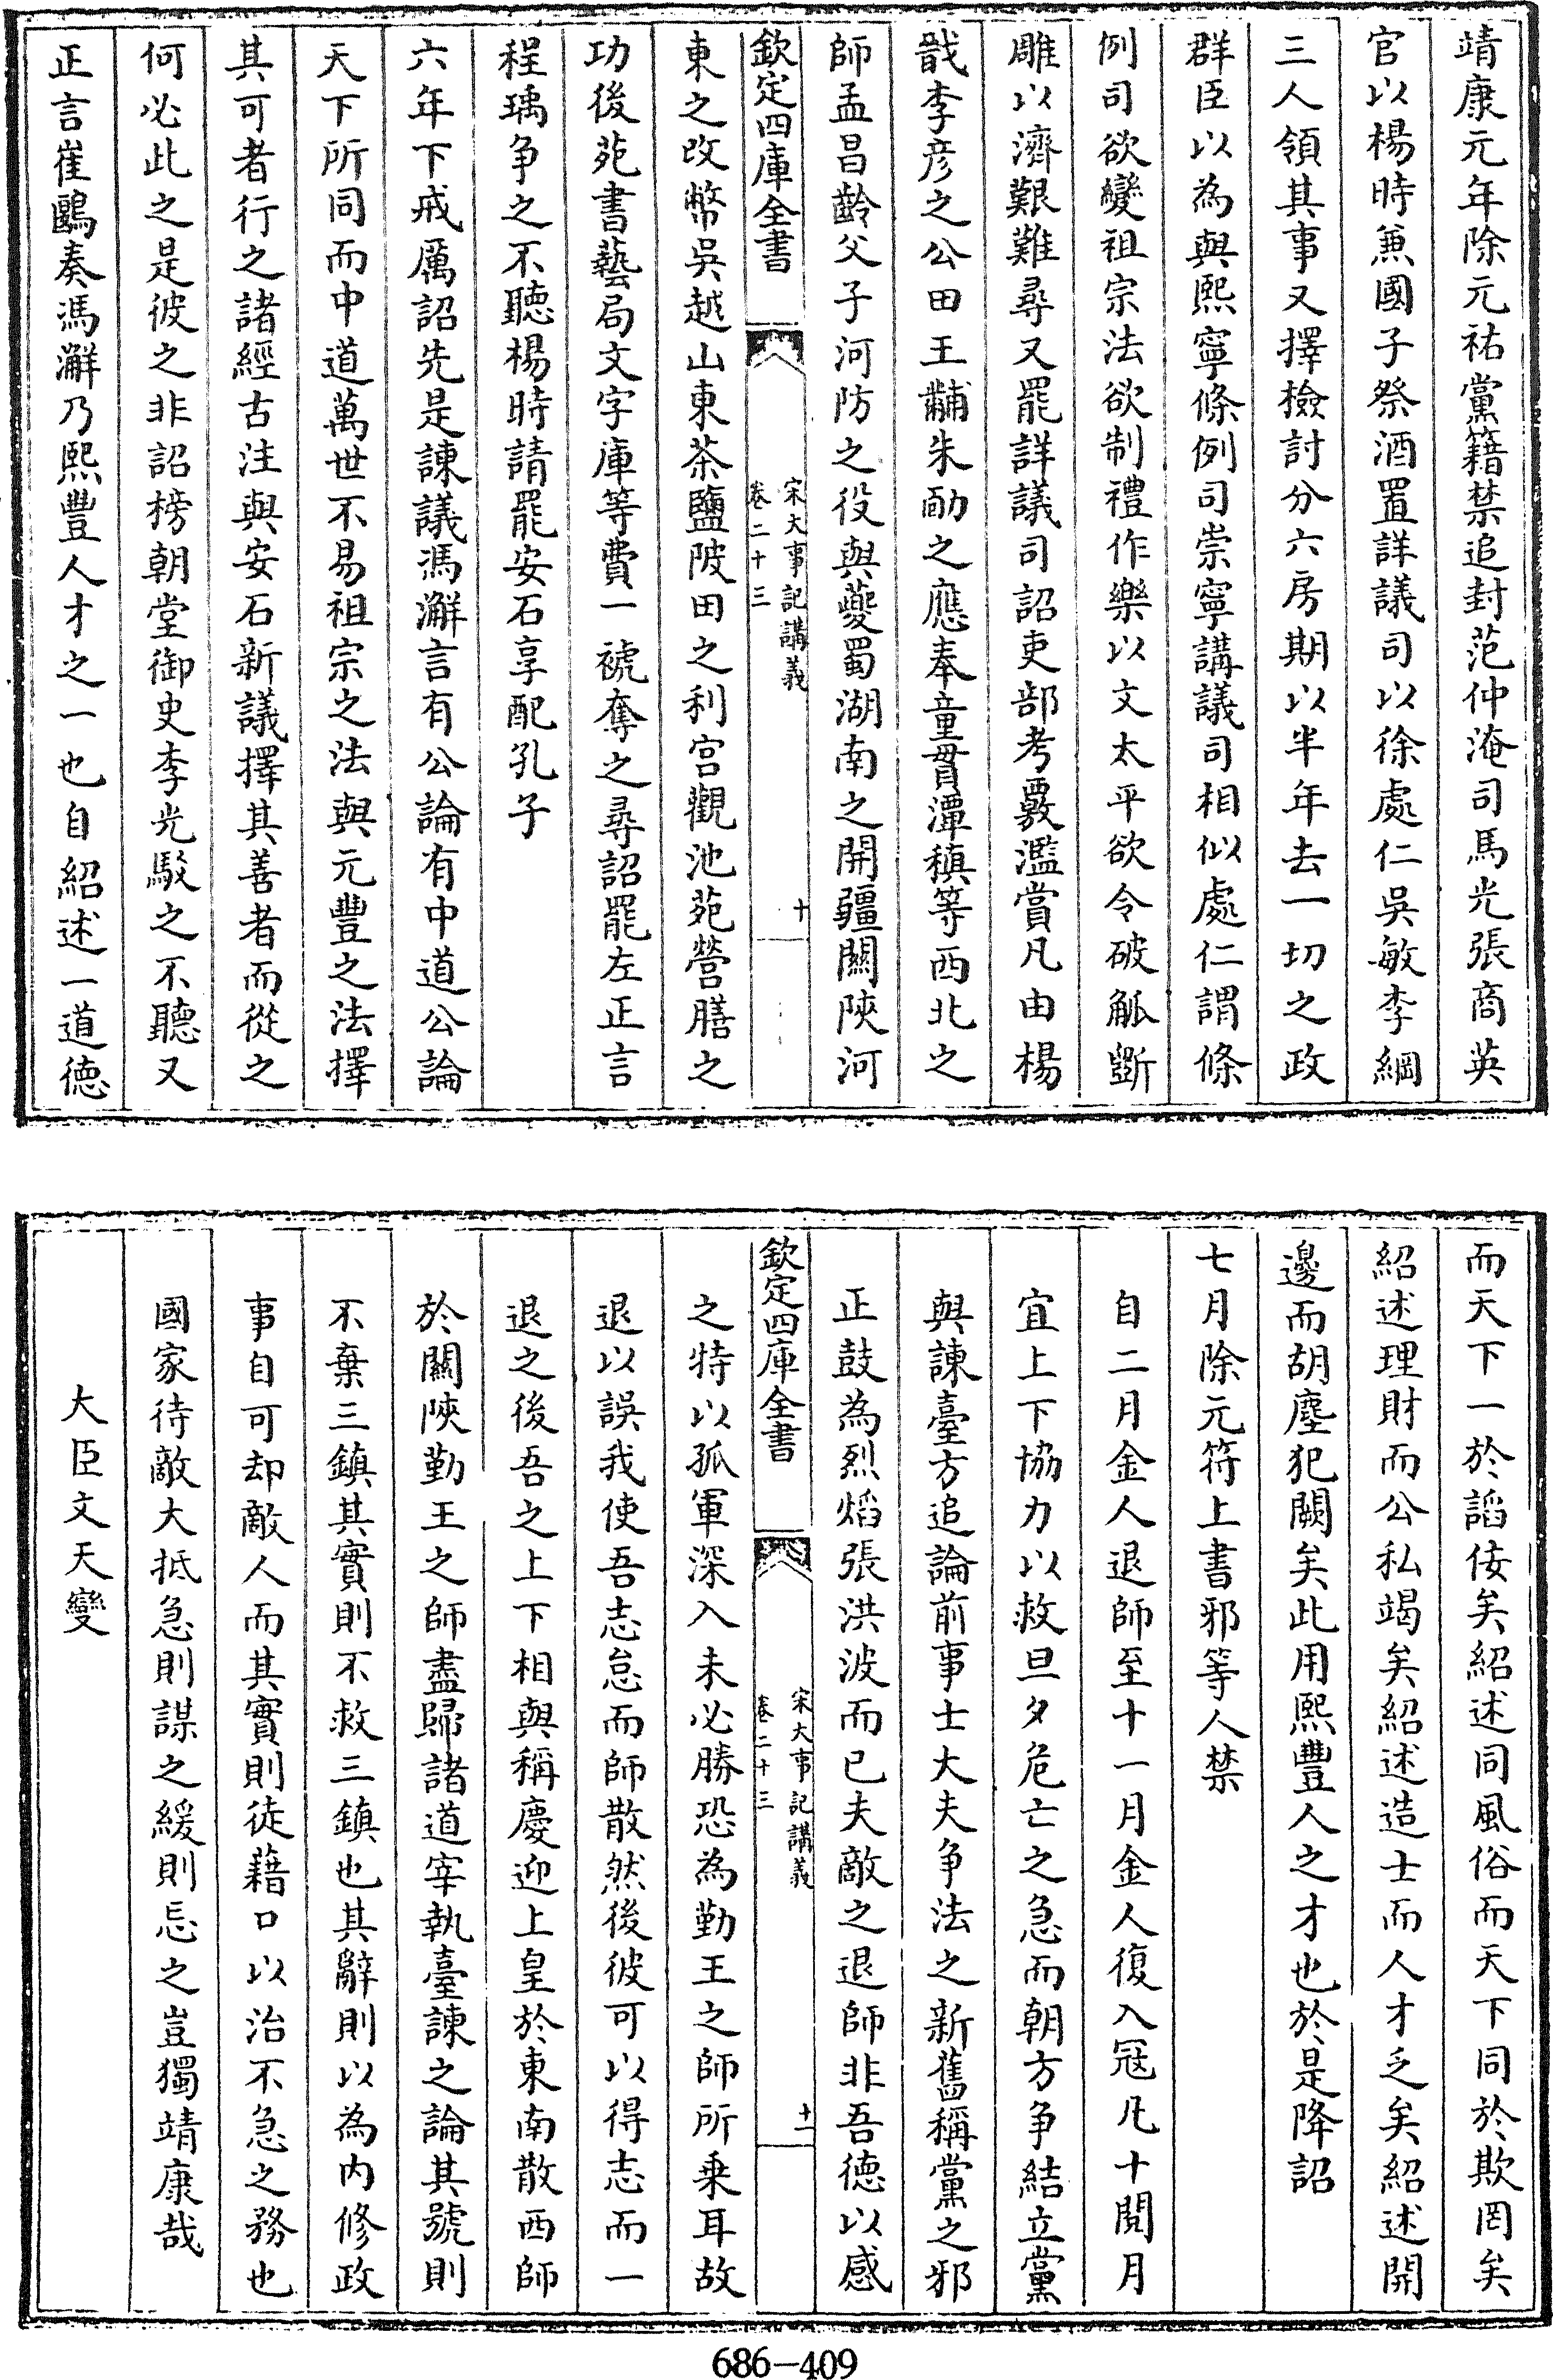 靖康元年除元祐黨籍禁追封范仲淹司馬光張商英
官以楊時兼國子祭酒置詳議司以徐處仁吳敏李綱
三人領其事又擇檢討分六房期以半年去一切之政
群臣以為與熙寧條例司崇寧講議司相似處仁謂條
例司欲變祖宗法欲制禮作樂以文太平欲令破觚斲
雕以濟艱難尋又罷詳議司詔吏部考覈濫賞凡由楊
戩李彦之公田王黼朱勔之應奉童貫潭稹等西北之
師孟昌齡父子河防之役與夔蜀湖南之開疆關陜河
欽定四庫全書
宋大事記講義
卷二十三
十
東之改幣吳越山東茶鹽陂田之利宫觀池苑營膳之
功後苑書藝局文字庫等費一褫奪之尋詔罷左正言
程瑀争之不聽楊時請罷安石享配孔子
六年下戒厲詔先是諫議馮澥言有公論有中道公論
天下所同而中道萬世不易祖宗之法與元豐之法擇
其可者行之諸經古注與安石新議擇其善者而從之
何必此之是彼之非詔榜朝堂御史李光駁之不聽又
正言崔鷗奏馮澥乃熙豐人才之一也自紹述一道德
而天下一於諂佞矣紹述同風俗而天下同於欺罔矣
紹述理財而公私竭矣紹述造士而人才乏矣紹述開
邊而胡塵犯闕矣此用熙豐人之才也於是降詔
七月除元符上書邪等人禁
自二月金人退師至十一月金人復入冦凡十閱月
宜上下協力以救旦夕危亡之急而朝方争結立黨
與諫臺方追論前事士大夫争法之新舊稱黨之邪
正鼓為烈熖張洪波而已夫敵之退師非吾德以感
欽定四庫全書
宋大事記講義
卷二十三
十一
之特以孤軍深入未必勝恐為勤王之師所乗耳故
退以誤我使吾志怠而師散然後彼可以得志而一
退之後吾之上下相與稱慶迎上皇於東南散西師
於關陜勤王之師盡歸諸道宰執臺諫之論其號則
不棄三鎮其實則不救三鎮也其辭則以為内修政
事自可却敵人而其實則徒藉口以治不急之務也
國家待敵大抵急則謀之緩則忘之豈獨靖康哉
大臣文天變
686-409